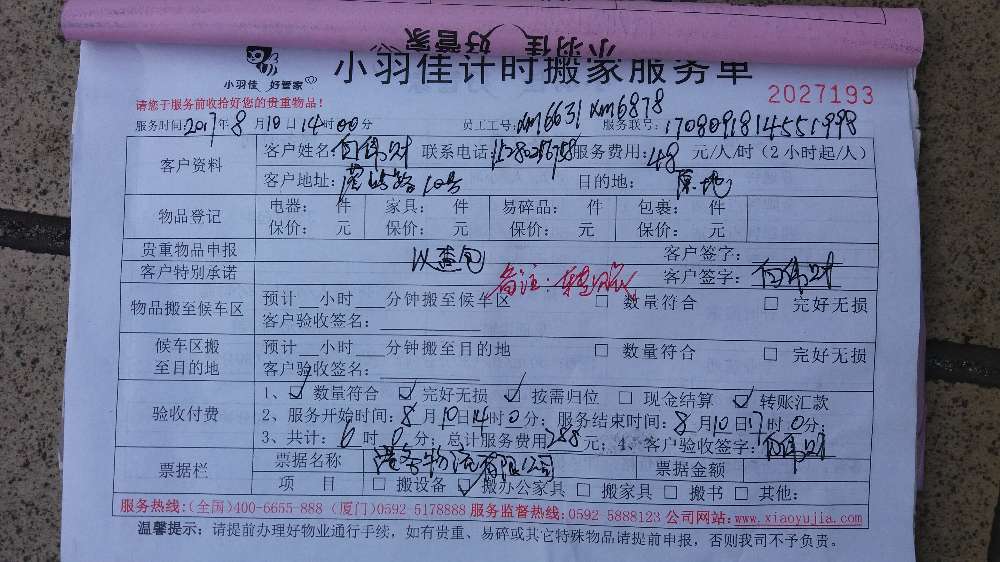 小羽佳 好管家
小羽佳 好管家
小羽佳计时搬家服务单
请您于服务前收拾好您的贵重物品！
2027193
服务时间:2017年8月10日14时00分 员工工号:xm6631 xm6878 服务联号:170809181455 998
客户资料 客户姓名: 联系电话: 服务费用:48元/人/时(2小时起/人)
客户地址: 10号 目的地: 原地
物品登记 电器: 件 家具: 件 易碎品: 件 包裹: 件
保价: 元 保价: 元 保价: 元 保价: 元
贵重物品申报 客户签字:
客户特别承诺 客户签字:
备注:
物品搬至候车区 预计__小时___分钟搬至候车区 □ 数量符合 □ 完好无损
客户验收签名:
候车区搬至目的地 预计__小时___分钟搬至目的地 □ 数量符合 □ 完好无损
客户验收签名:
验收付费 1、☑ 数量符合 ☑ 完好无损 ☑ 按需归位 □ 现金结算 ☑ 转账汇款
2、服务开始时间:8月10日14时0分; 服务结束时间:8月10日17时0分;
3、共计:6时0分; 总计服务费用288元; 4、客户验收签字:
票据栏 票据名称 港务物流有限公司 票据金额
项 目 □ 搬设备 ☑ 搬办公家具 □ 搬家具 □ 搬书 □ 其他:
服务热线:(全国)400-6655-888 (厦门)0592-5178888 服务监督热线:0592 5888123 公司网站:www.xiaoyujia.com
温馨提示: 请提前办理好物业通行手续, 如有贵重、易碎或其它特殊物品请提前申报, 否则我司不予负责。